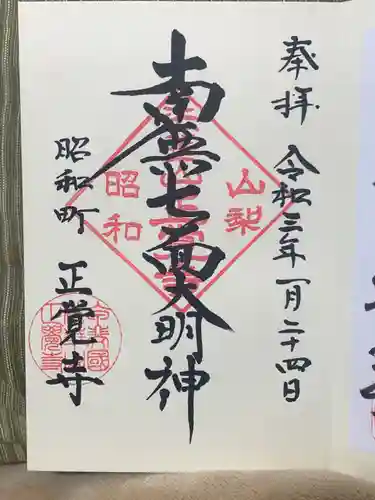 奉拝
令和三年一月二十四日
南無七面大明神
山梨
昭和
昭和町
正覺寺